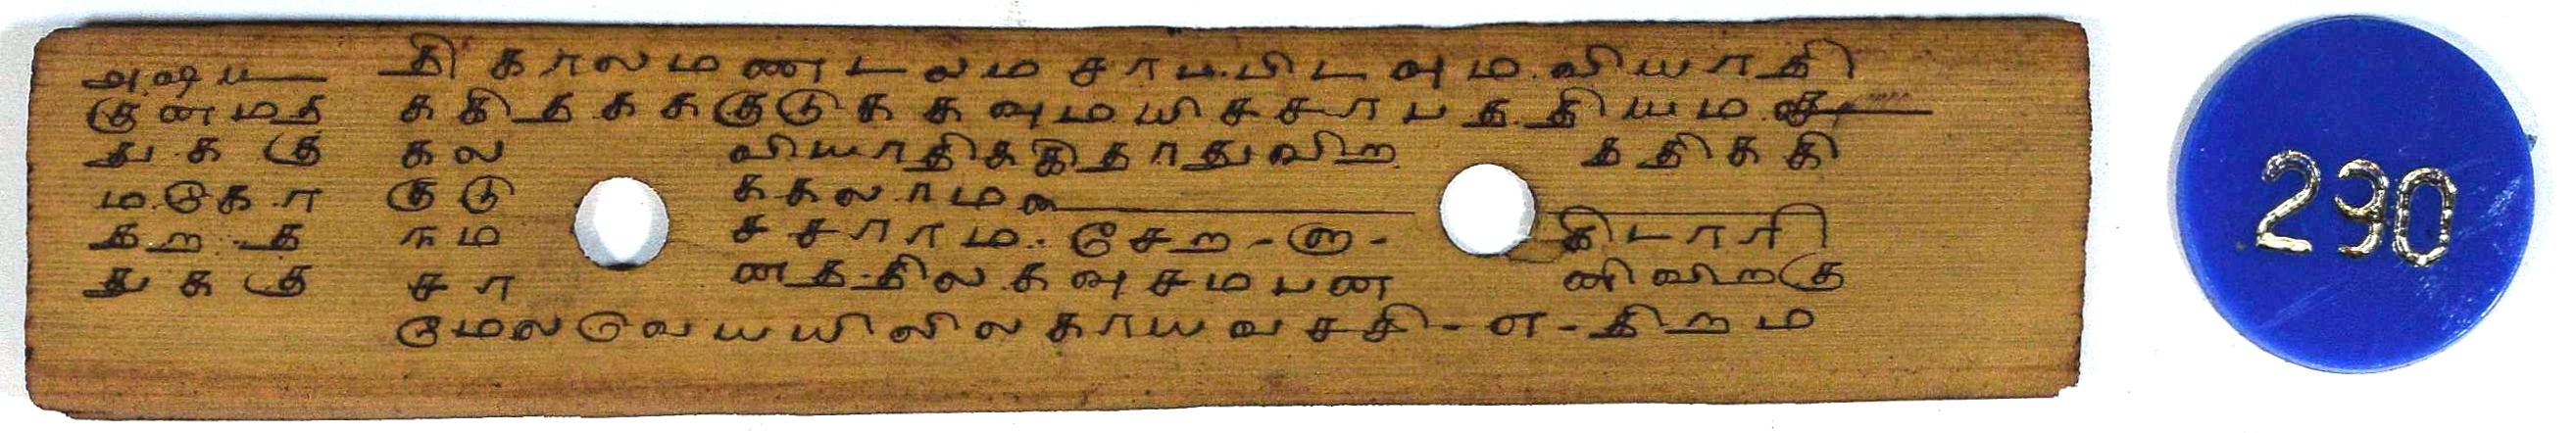 அஷய தி காலமணடலம சாபபிடவும வியாதி
குனமத ககிதகககுடுககவுமயிசசாபததியம
துககு கல வியாதிககிதாதுவிற ததிககி
மடுகா குடு ககலாம
தறத ஈம சசாராம சேற ரு கிடாரி
துககு சா னததிலகவுசமபண ணிவிறகு
மேலவெயயிலில காயவசசி எ திறம
290